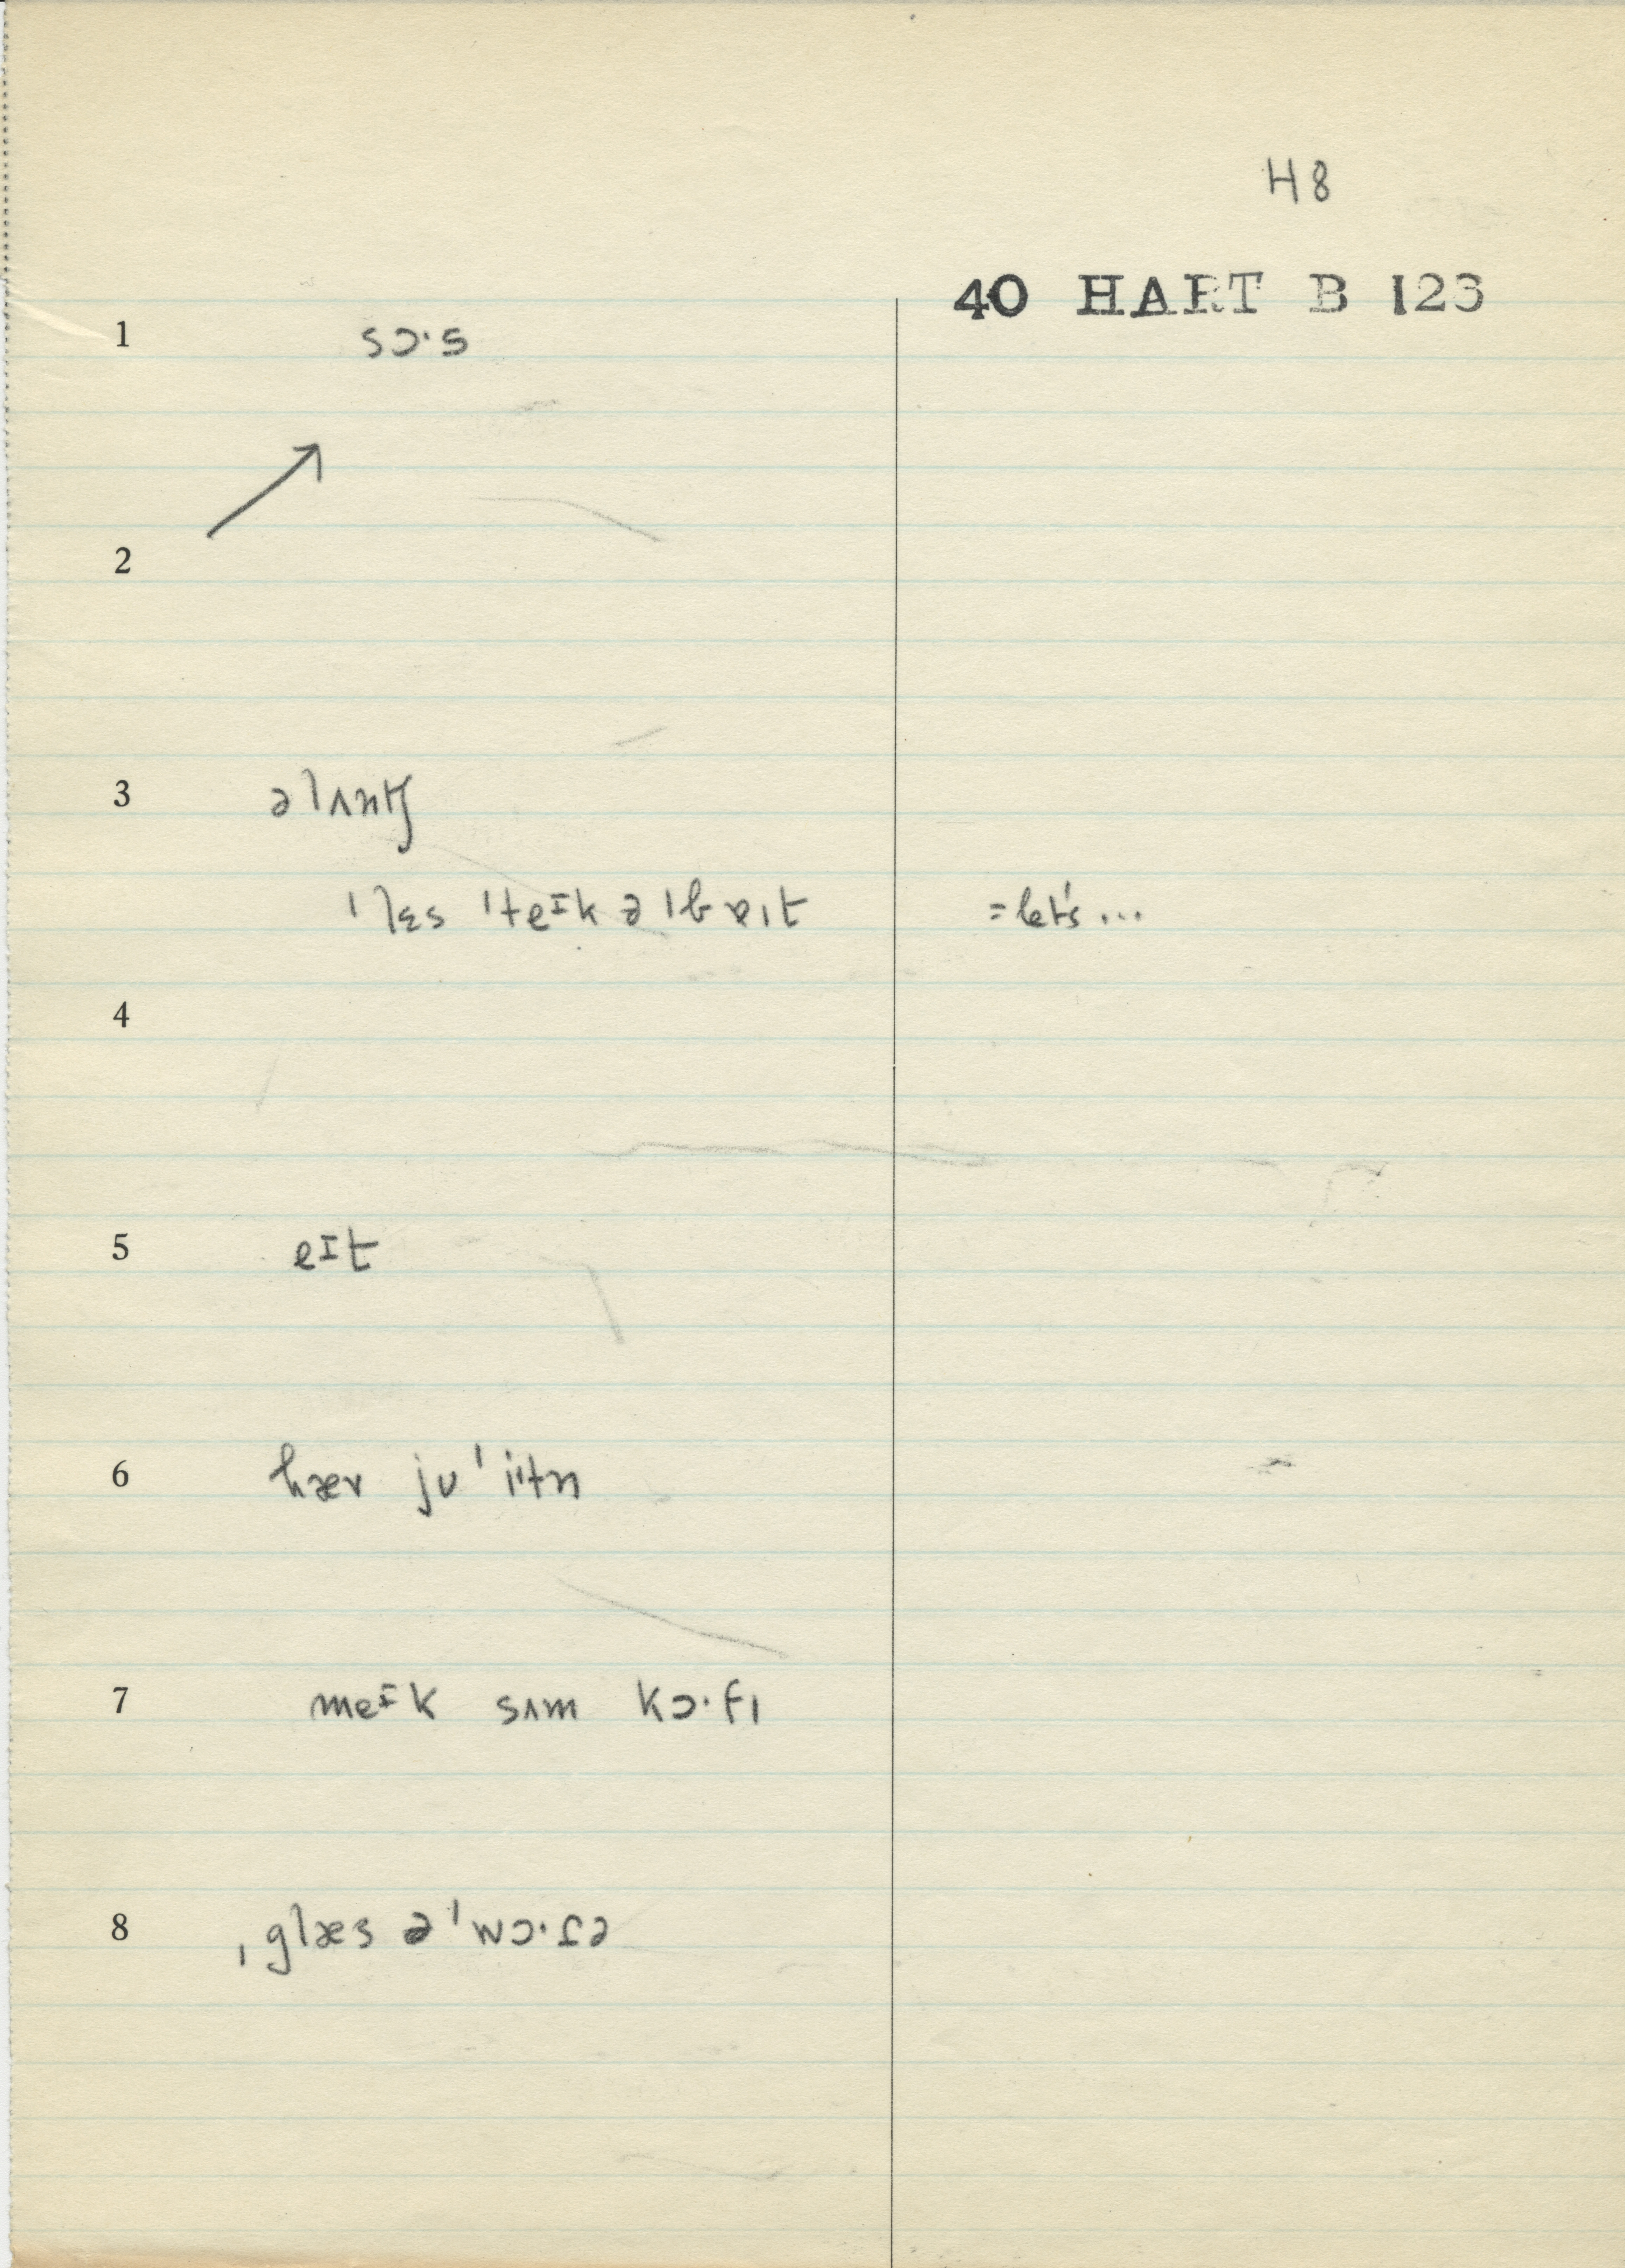 H8
40 HART B 123
1 sɔ·s
2
3 əlʌntʃ
ˈlɛs ˈteɪk ə ˈbɐɪt =let's...
4
5 eɪt
6 hæv jʊ ˈiːtn
7 meɪk sʌm kɔ·fɪ
8 ˌglæs ə ˈwɔ·ɾə